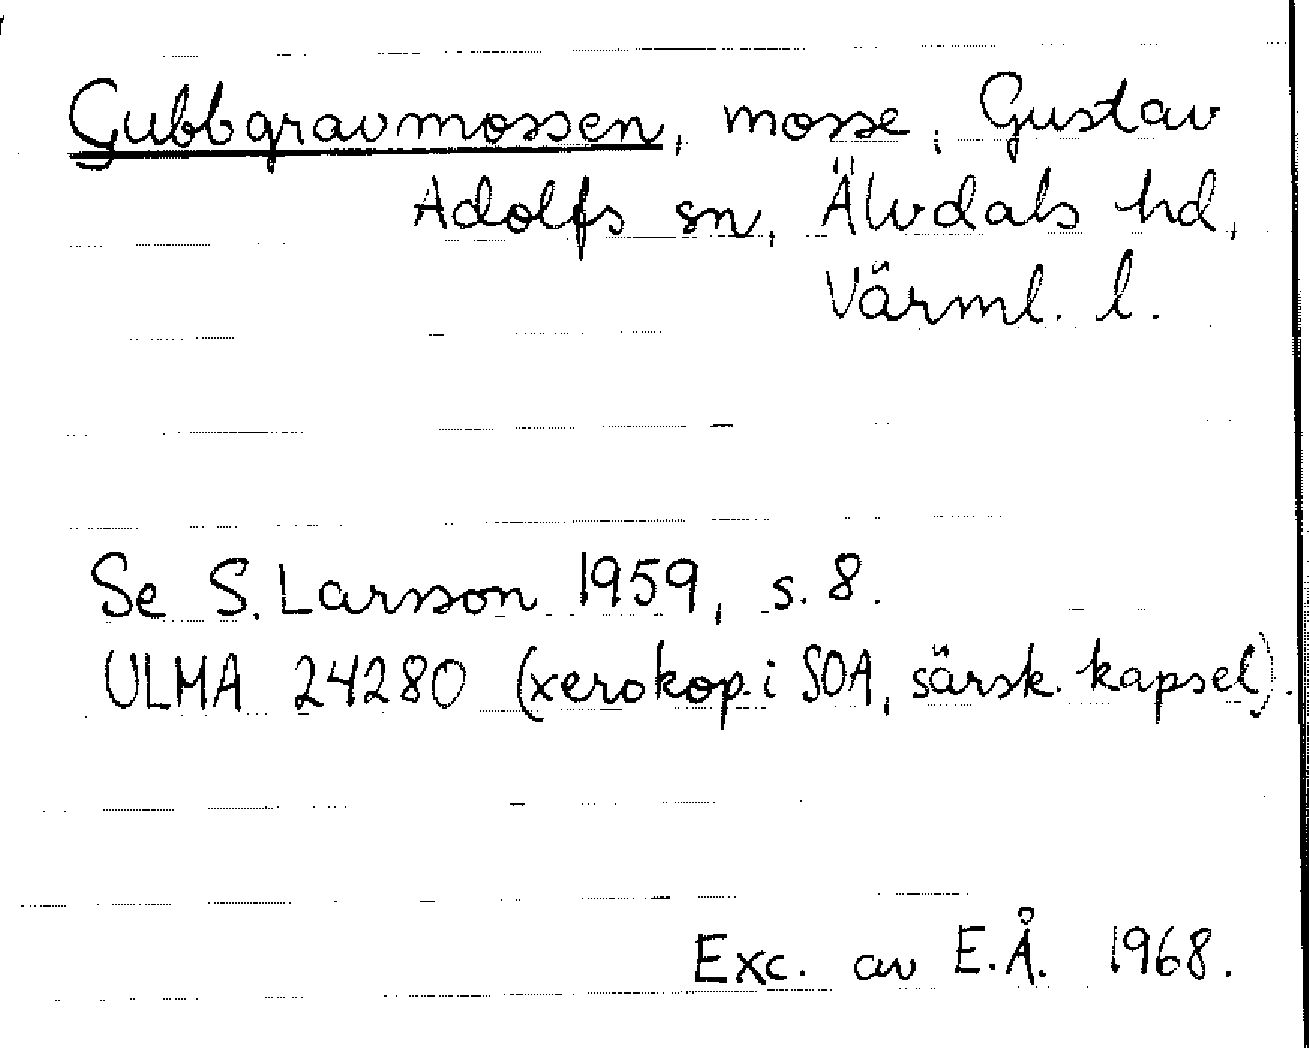 Gubbgravmossen, mosse, Gustav
Adolfs sn, Älvdals hd,
Värml. l.
Se S. Larsson 1959, s. 8.
ULMA 24280 (xerokop. i SOA, särsk. kapsel).
Exc. av E.Å. 1968.